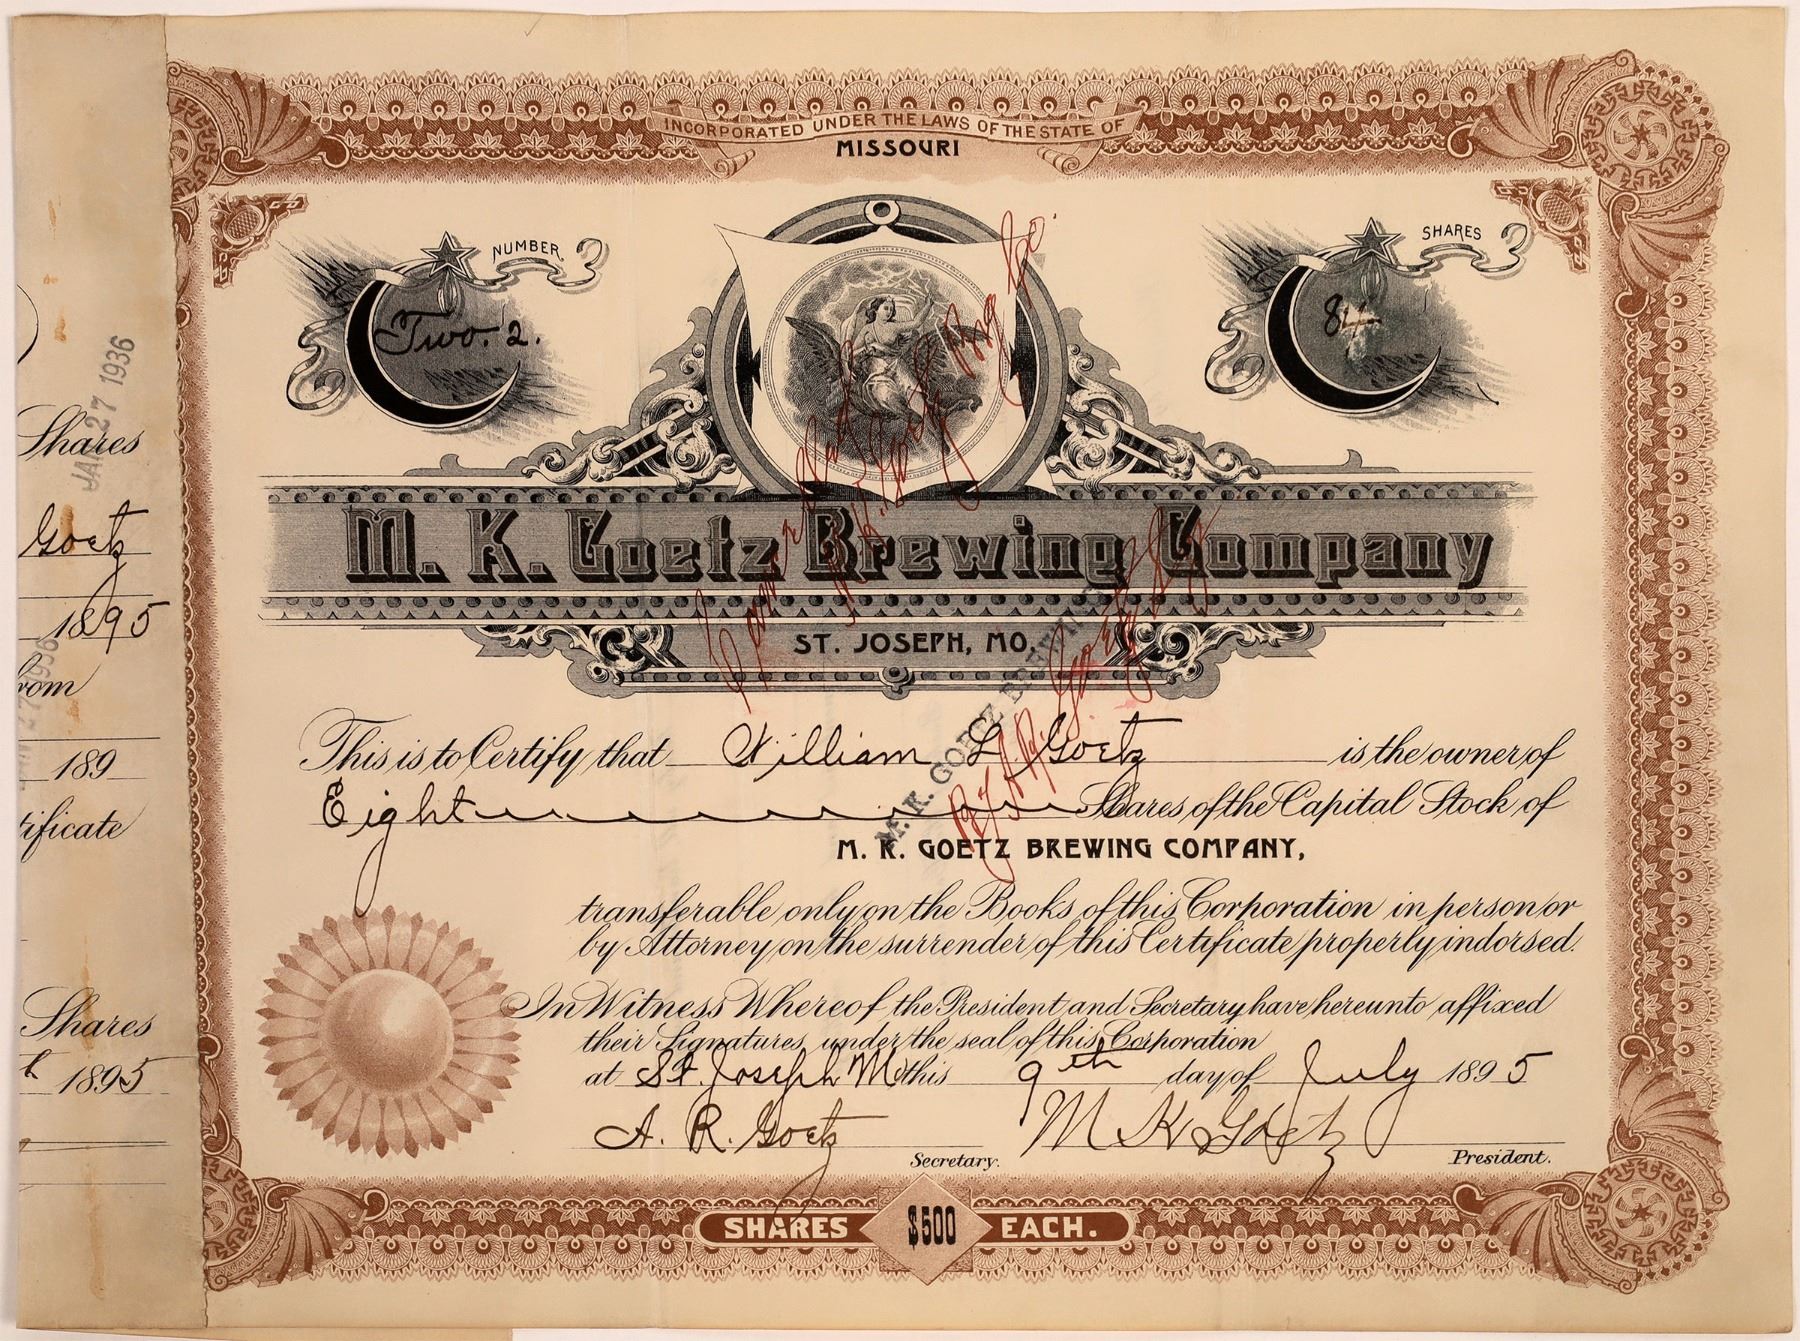 INCORPORATED UNDER THE LAWS OF THE STATE OF
MISSOURI
NUMBER
Two. 2.
SHARES
8
M. K. Goetz Brewing Company
ST. JOSEPH, MO.
This is to Certify that William L. Goetz is the owner of
Eight Shares of the Capital Stock of
M. K. GOETZ BREWING COMPANY,
transferable only on the Books of this Corporation in person or
by Attorney on the surrender of this Certificate properly indorsed.
In Witness Whereof the President and Secretary have hereunto affixed
their Signatures, under the seal of this Corporation
at St. Joseph Mo this 9th day of July 1895
A. R. Goetz
Secretary.
M K Goetz
President.
SHARES $500 EACH.
Cancelled
M. K. Goetz Brg Co.
M. K. GOETZ BREWING
Shares
JAN 27 1936
Goetz
1895
rom
189
tificate
Shares
1895